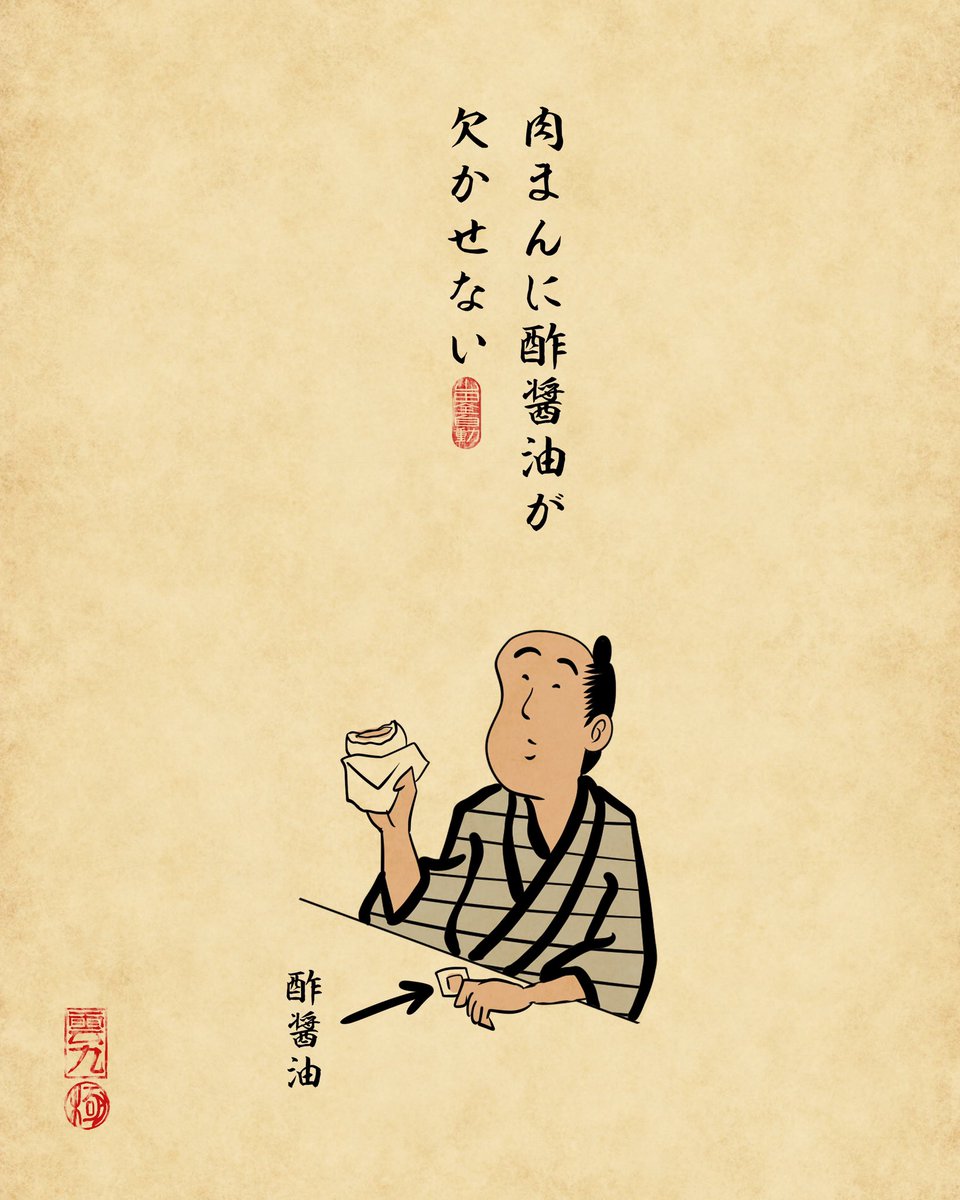 肉まんに酢醤油が
欠かせない
酢醤油